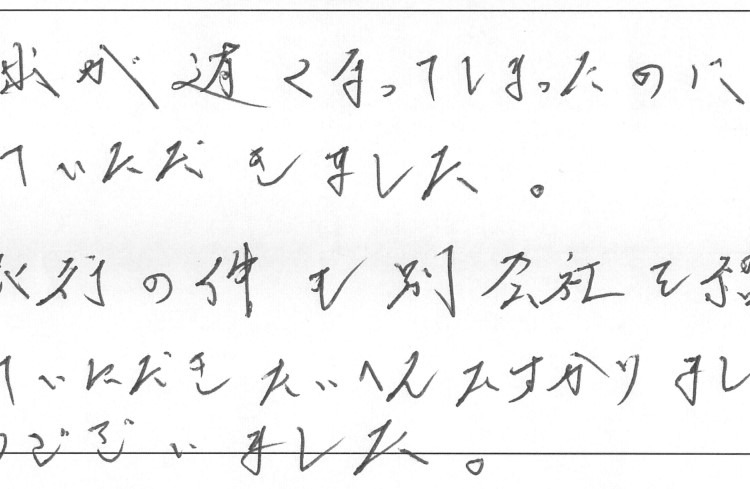 出が遅くなってしまったのに
ていただきました。
行の件も別会社を紹
ていただきたいへんたすかりまし
うございました。